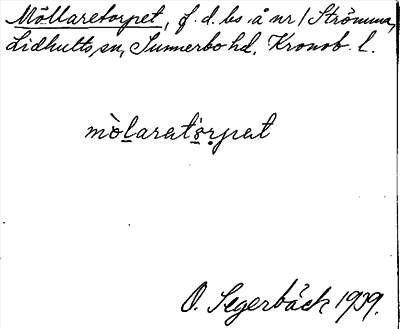 Möllaretorpet, f. d. bs. å nr 1 Strömma,
Lidhults sn, Sunnerbo hd. Kronob. l.
mò̱laratò̱rpat
O. Segerbäck 1939.